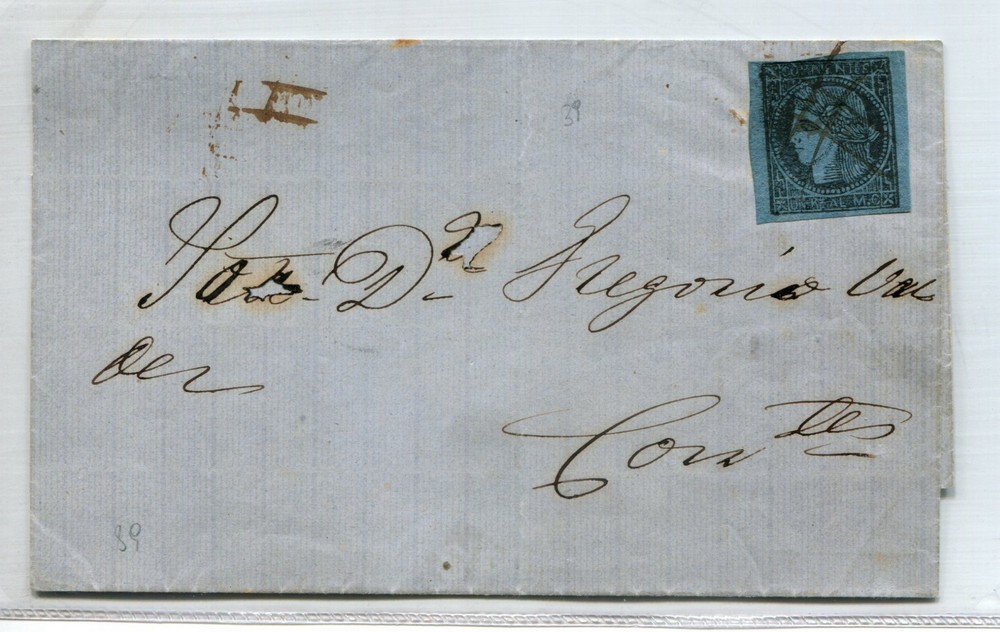 39
CORRIENTES
UN REAL M.C.
Sor. Dn. Gregorio Val
der
Corrtes
39